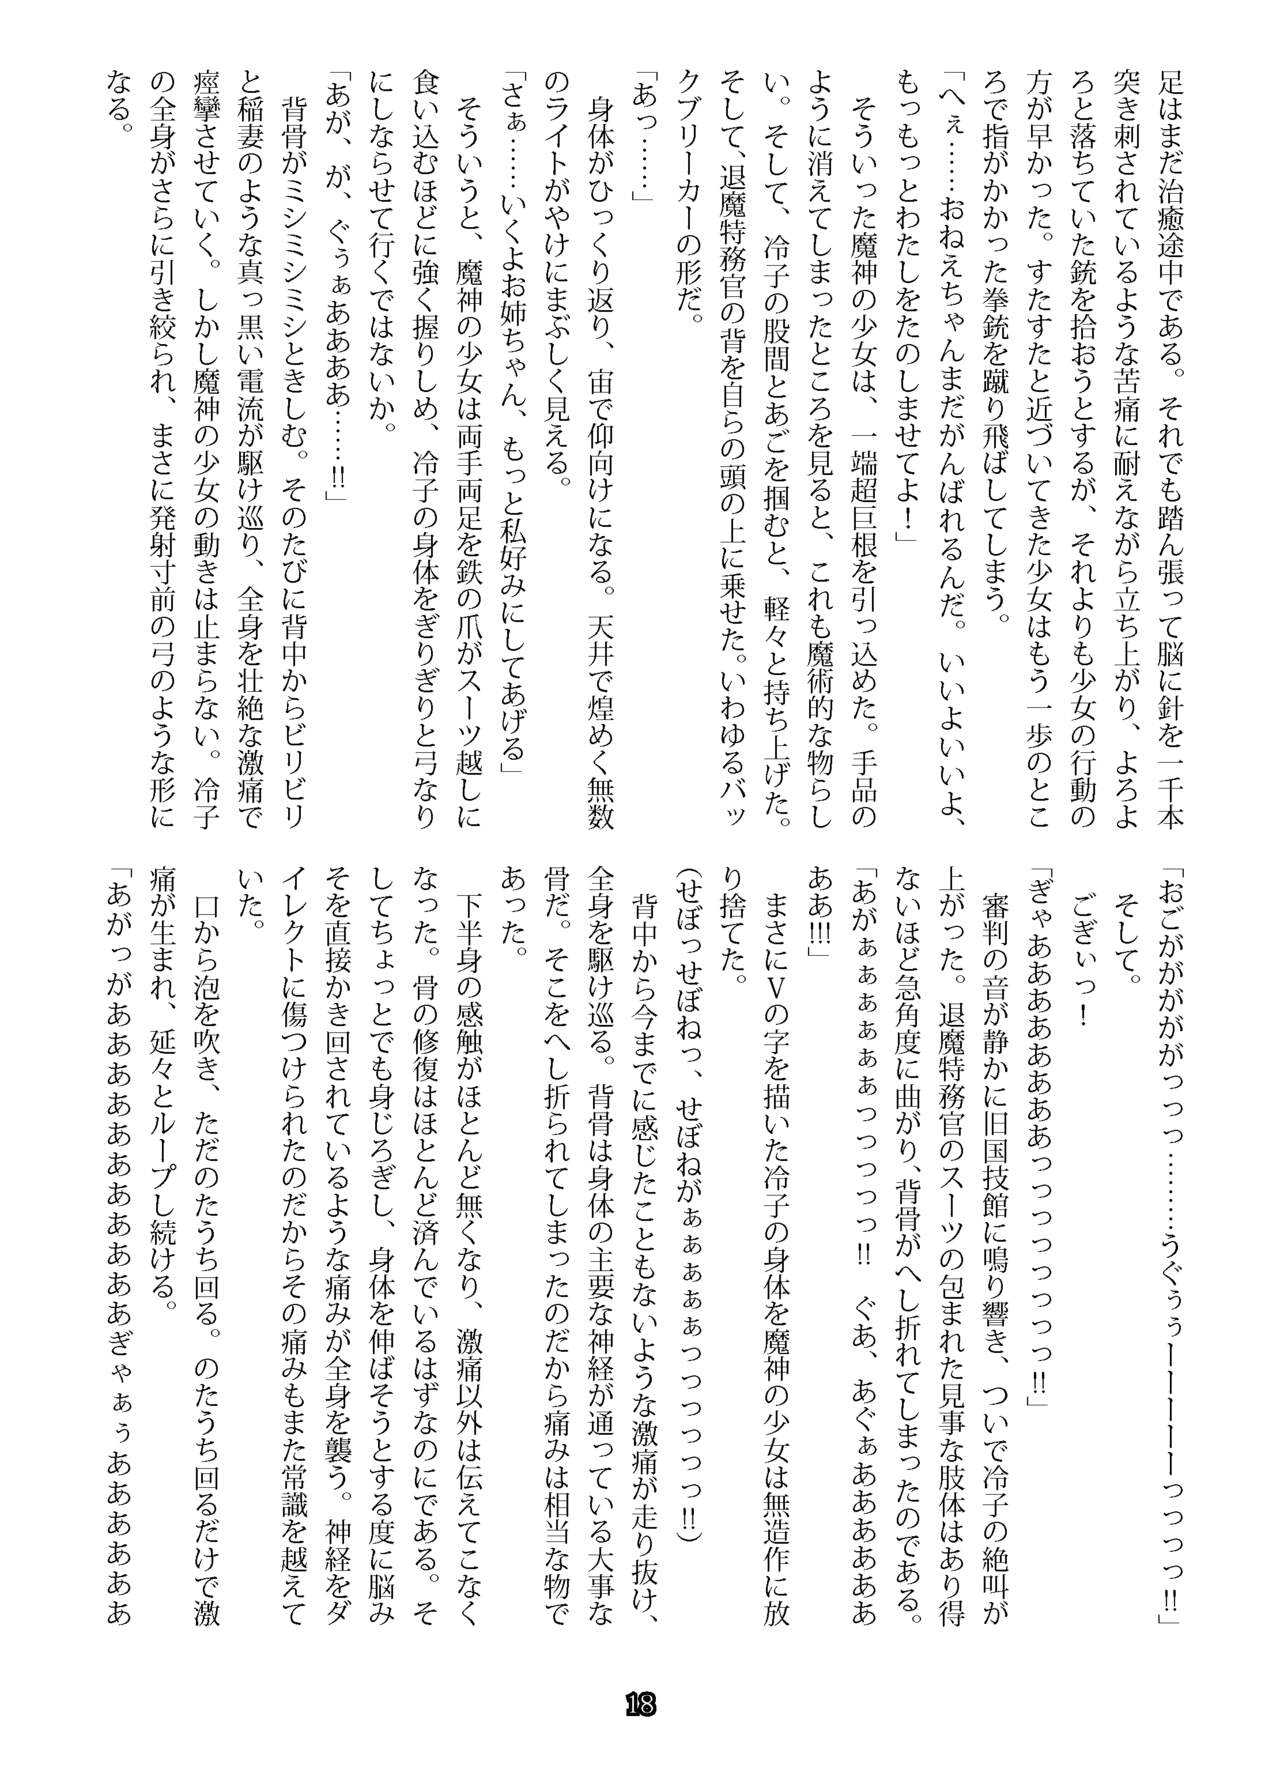 足はまだ治癒途中である。それでも踏ん張って脳に針を一千本
突き刺されているような苦痛に耐えながら立ち上がり、よろよ
ろと落ちていた銃を拾おうとするが、それよりも少女の行動の
方が早かった。すたすたと近づいてきた少女はもう一歩のとこ
ろで指がかかった拳銃を蹴り飛ばしてしまう。
「へぇ……おねえちゃんまだがんばれるんだ。いいよいいよ、
もっもっとわたしをたのしませてよ！」
　そういった魔神の少女は、一端超巨根を引っ込めた。手品の
ように消えてしまったところを見ると、これも魔術的な物らし
い。そして、冷子の股間とあごを掴むと、軽々と持ち上げた。
そして、退魔特務官の背を自らの頭の上に乗せた。いわゆるバッ
クブリーカーの形だ。
「あっ……」
　身体がひっくり返り、宙で仰向けになる。天井で煌めく無数
のライトがやけにまぶしく見える。
「さぁ……いくよお姉ちゃん、もっと私好みにしてあげる」
　そういうと、魔神の少女は両手両足を鉄の爪がスーツ越しに
食い込むほどに強く握りしめ、冷子の身体をぎりぎりと弓なり
にしならせて行くではないか。
「あが、が、ぐぅぁああああ……!!」
　背骨がミシミシミシときしむ。そのたびに背中からビリビリ
と稲妻のような真っ黒い電流が駆け巡り、全身を壮絶な激痛で
痙攣させていく。しかし魔神の少女の動きは止まらない。冷子
の全身がさらに引き絞られ、まさに発射寸前の弓のような形に
なる。
「おごがががががっっっ………うぐぅぅーーーーーっっっっ!!」
　そして。
　ごぎぃっ！
「ぎゃああああああああっっっっっっっっ!!」
　審判の音が静かに旧国技館に鳴り響き、ついで冷子の絶叫が
上がった。退魔特務官のスーツの包まれた見事な肢体はあり得
ないほど急角度に曲がり、背骨がへし折れてしまったのである。
「あがぁぁぁぁぁぁっっっっっ!!　ぐあ、あぐぁああああああ
ああ!!!」
　まさにＶの字を描いた冷子の身体を魔神の少女は無造作に放
り捨てた。
（せぼっせぼねっ、せぼねがぁぁぁぁぁっっっっっっ!!）
　背中から今までに感じたこともないような激痛が走り抜け、
全身を駆け巡る。背骨は身体の主要な神経が通っている大事な
骨だ。そこをへし折られてしまったのだから痛みは相当な物で
あった。
　下半身の感触がほとんど無くなり、激痛以外は伝えてこなく
なった。骨の修復はほとんど済んでいるはずなのにである。そ
してちょっとでも身じろぎし、身体を伸ばそうとする度に脳み
そを直接かき回されているような痛みが全身を襲う。神経をダ
イレクトに傷つけられたのだからその痛みもまた常識を越えて
いた。
　口から泡を吹き、ただのたうち回る。のたうち回るだけで激
痛が生まれ、延々とループし続ける。
「あがっがあああああああああああぎゃぁぅああああああ
18